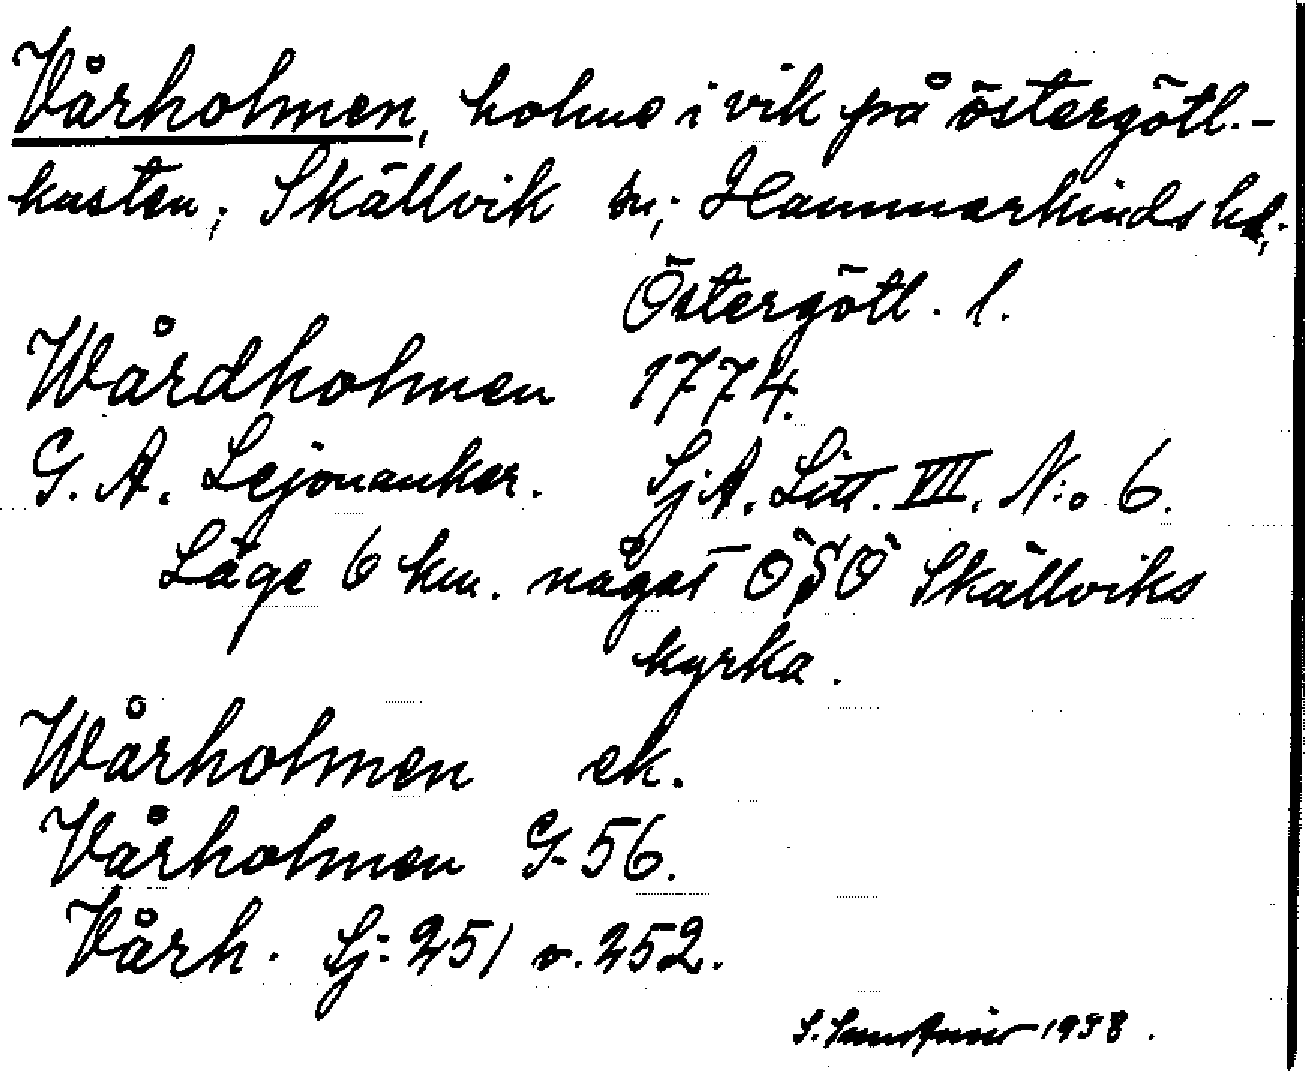 Vårholmen, holme i vik på östergötl.-
kusten, Skällvik sn, Hammarkinds hd,
Östergötl. l.
Wårdholmen 1774.
G. A. Lejonanker. Sj.A. Litt. VII. N:o 6.
Läge 6 km. något ÖSÖ Skällviks
kyrka.
Wårholmen ek.
Vårholmen G-56.
Vårh. Sj: 251 o. 252.
S. 1938.